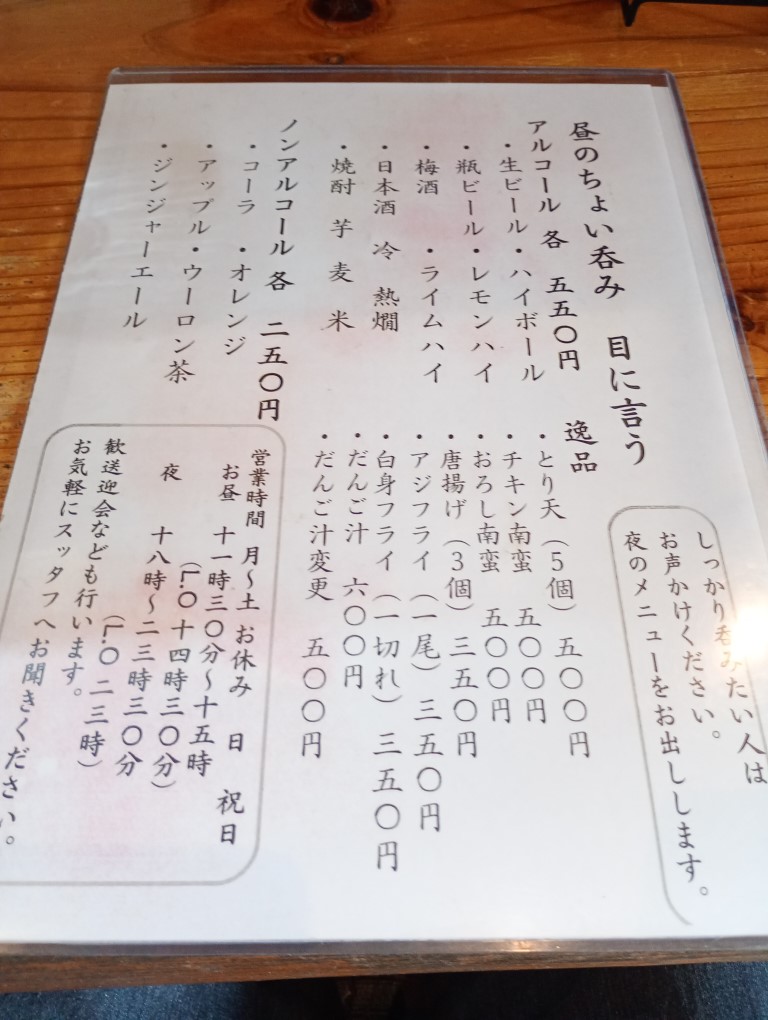 昼のちょい呑み 目に言う
アルコール 各 五五〇円
・生ビール ・ハイボール
・瓶ビール ・レモンハイ
・梅酒 ・ライムハイ
・日本酒 冷 熱燗
・焼酎 芋 麦 米
ノンアルコール 各 二五〇円
・コーラ ・オレンジ
・アップル ・ウーロン茶
・ジンジャーエール
しっかり呑みたい人は
お声かけください。
夜のメニューをお出しします。
逸品
・とり天(5個) 五〇〇円
・チキン南蛮 五〇〇円
・おろし南蛮 五〇〇円
・唐揚げ(3個) 三五〇円
・アジフライ(一尾) 三五〇円
・白身フライ(一切れ) 三五〇円
・だんご汁 六〇〇円
・だんご汁変更 五〇〇円
営業時間 月~土 お休み 日 祝日
お昼 十一時三〇分~十五時
(L.O 十四時三〇分)
夜 十八時~二三時三〇分
(L.O 二三時)
歓送迎会なども行います。
お気軽にスッタフへお聞きください。